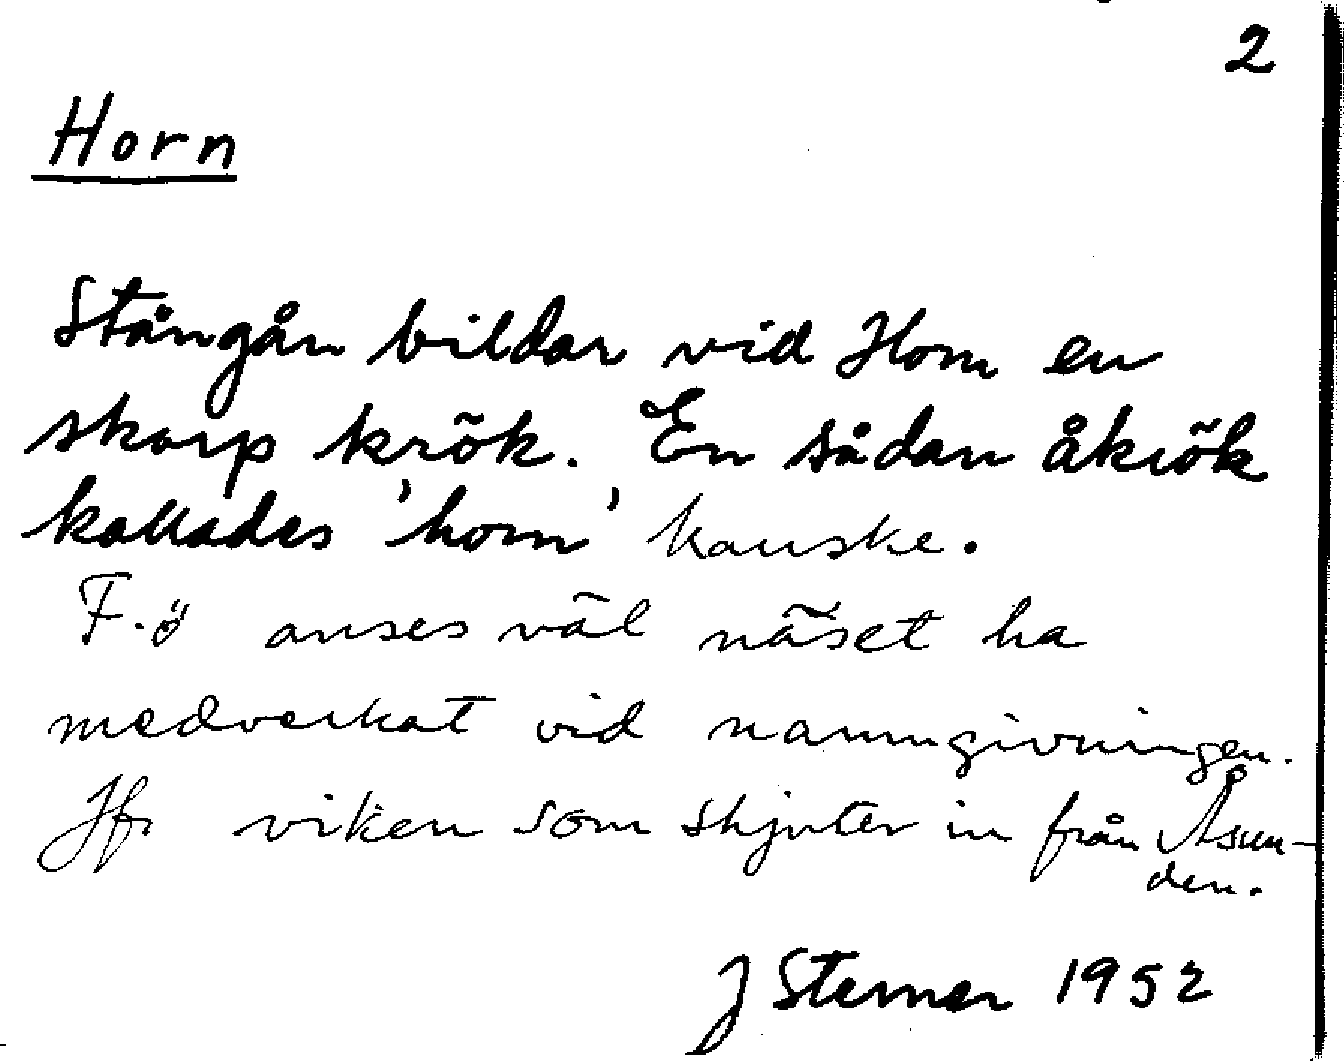 2
Horn
Stångån bildar vid Horn en
skarp krök. En sådan åkrök
kallades 'horn' kanske.
F.ö anses väl näset ha
medverkat vid namngivningen.
Jfr viken som skjuter in från Åsun-
den.
J Sterner 1952